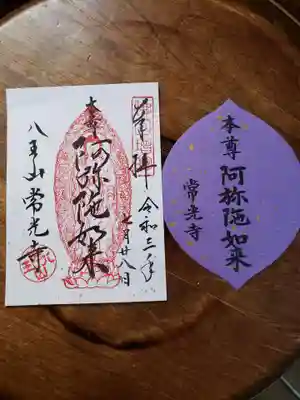 奉拝
令和三年
七月廿八日
本尊
阿弥陀如来
八王山常光寺
本尊 阿弥陀如来
常光寺